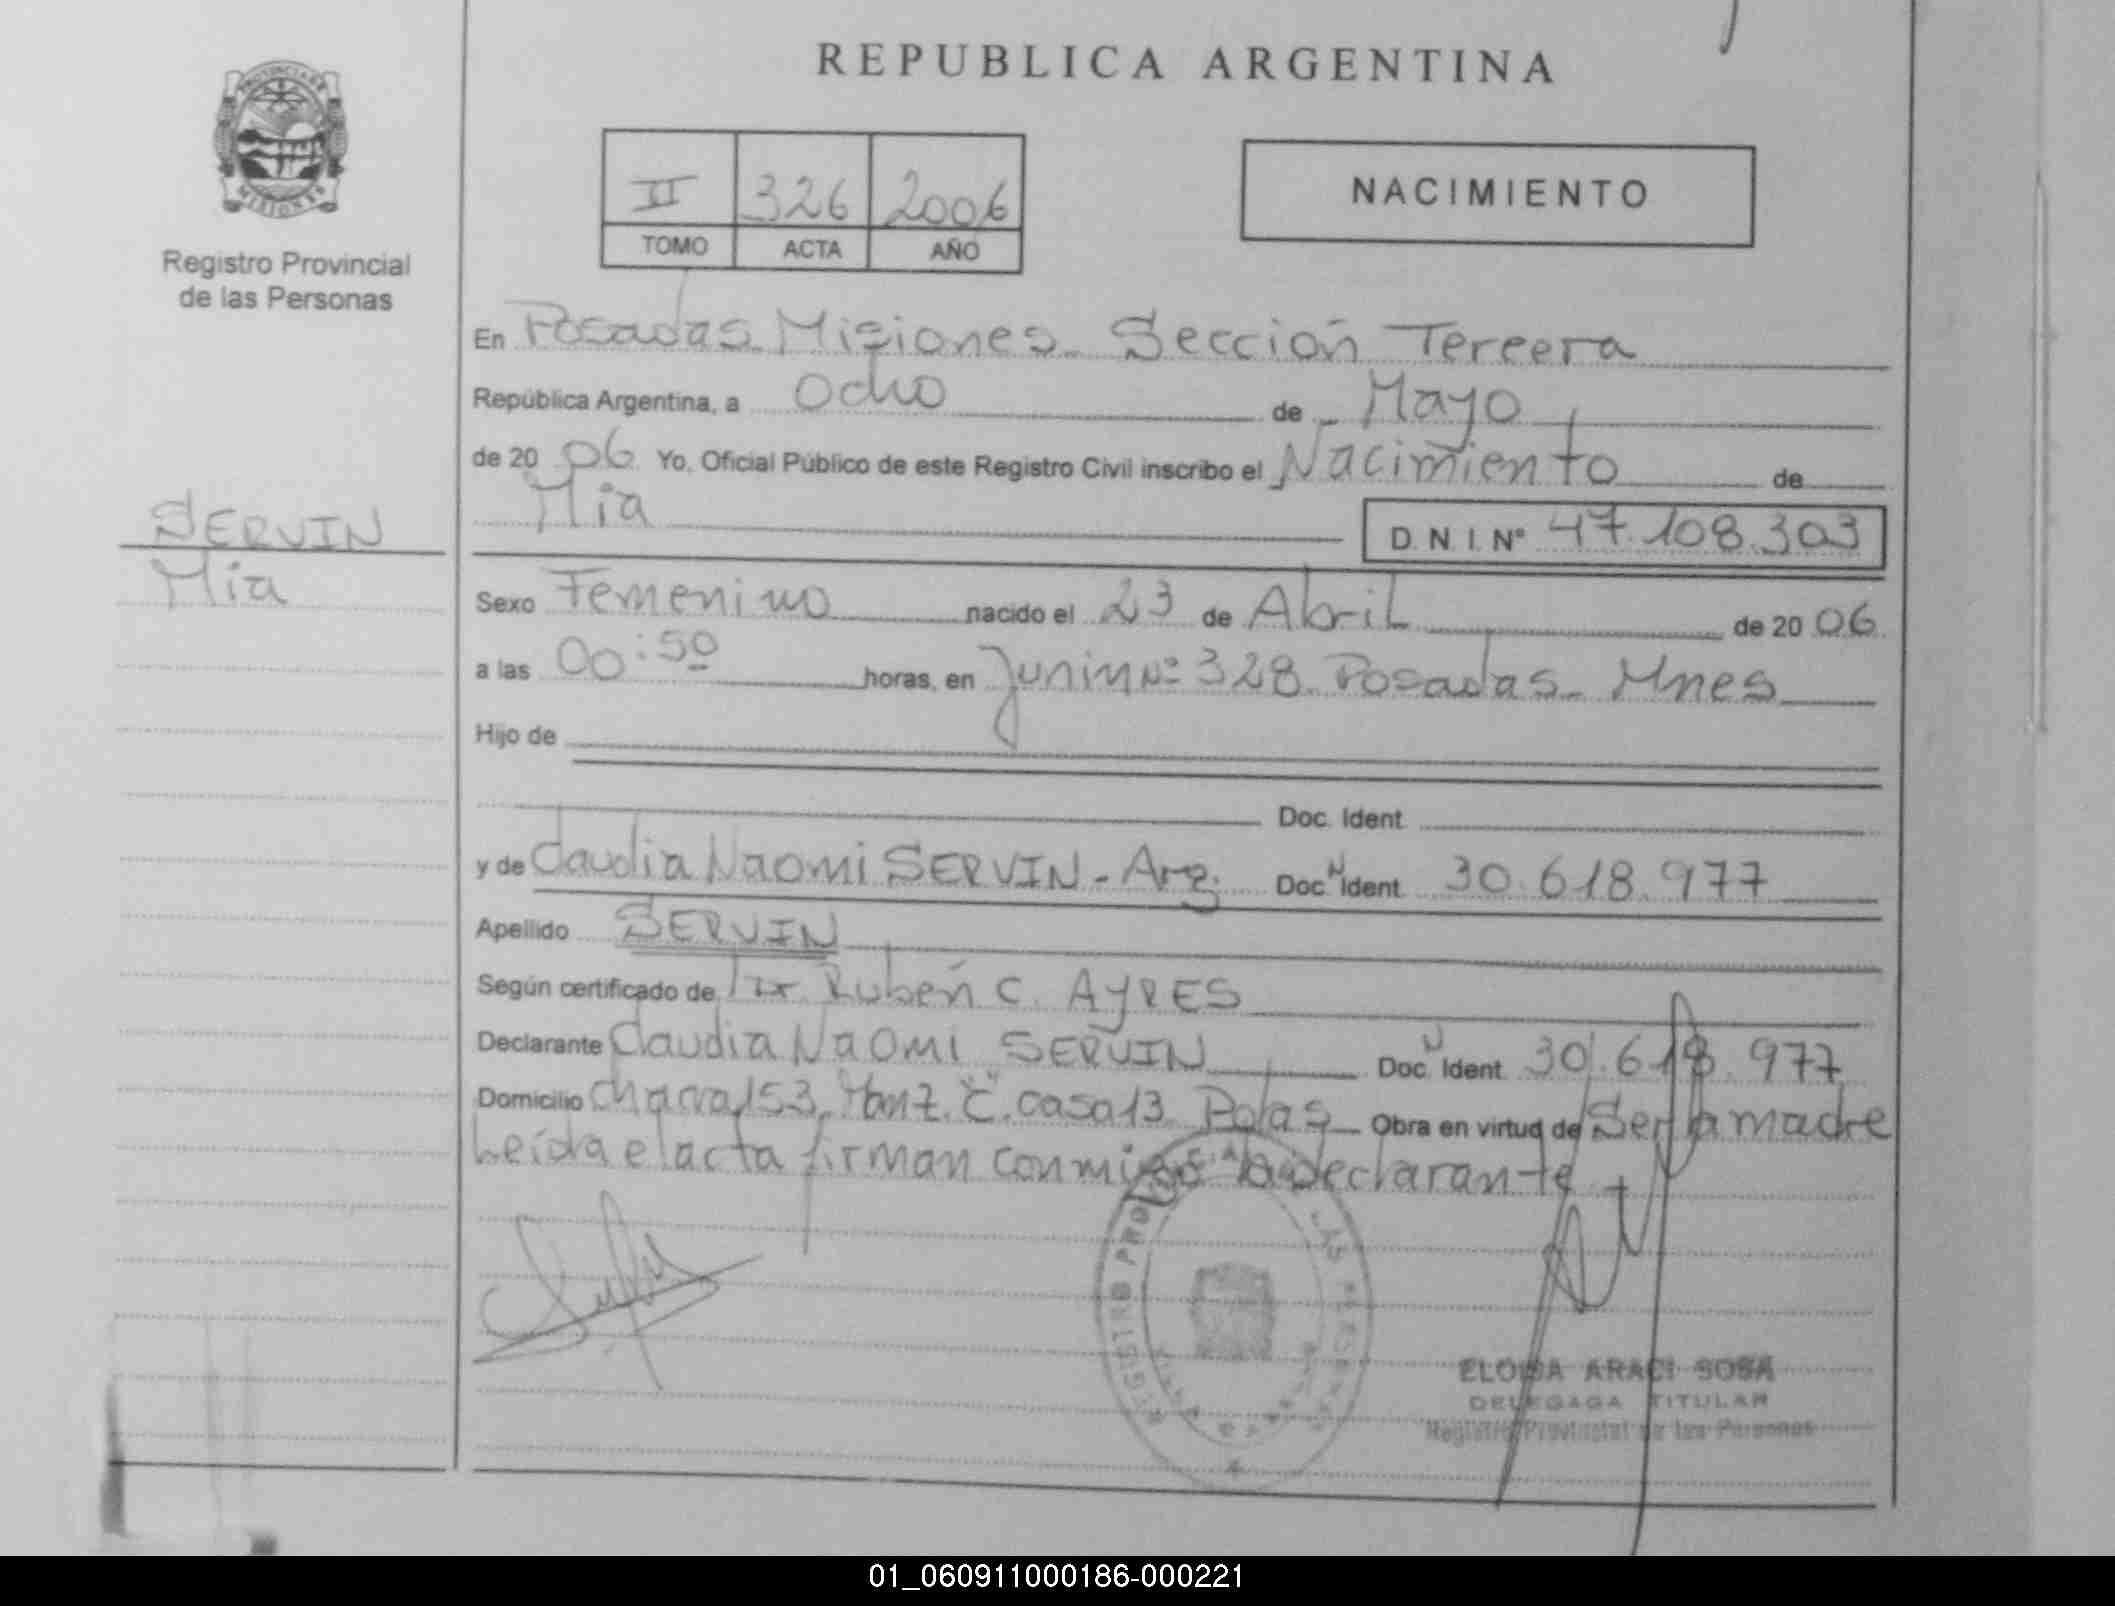 REPUBLICA ARGENTINA
PROVINCIA DE
MISIONES
Registro Provincial
de las Personas
II 326 2006
TOMO ACTA AÑO
NACIMIENTO
En Posadas Misiones Sección Tercera
República Argentina, a Ocho de Mayo
de 2006 Yo, Oficial Público de este Registro Civil inscribo el Nacimiento de
Mia D. N. I. Nº 47.108.303
SERVIN
Mia
Sexo Femenino nacido el 23 de Abril de 2006
a las 00:50 horas, en Junin Nº 328 Posadas Mnes
Hijo de
Doc. Ident
y de Claudia Naomi SERVIN - Arg. Doc. N Ident 30.618.977
Apellido SERVIN
Según certificado de Dr. Rubén C. AYRES
Declarante Claudia Naomi SERVIN Doc. N Ident 30.618.977
Domicilio Chacra 153, Manz. "C". casa 13 Pdas Obra en virtud de Ser la madre
Leída el acta firman conmigo la Declarante
REGISTRO PROVINCIAL DE LAS PERSONAS
ELOISA ARACI SOSA
DELEGADA TITULAR
Registro Provincial de las Personas
01_060911000186-000221